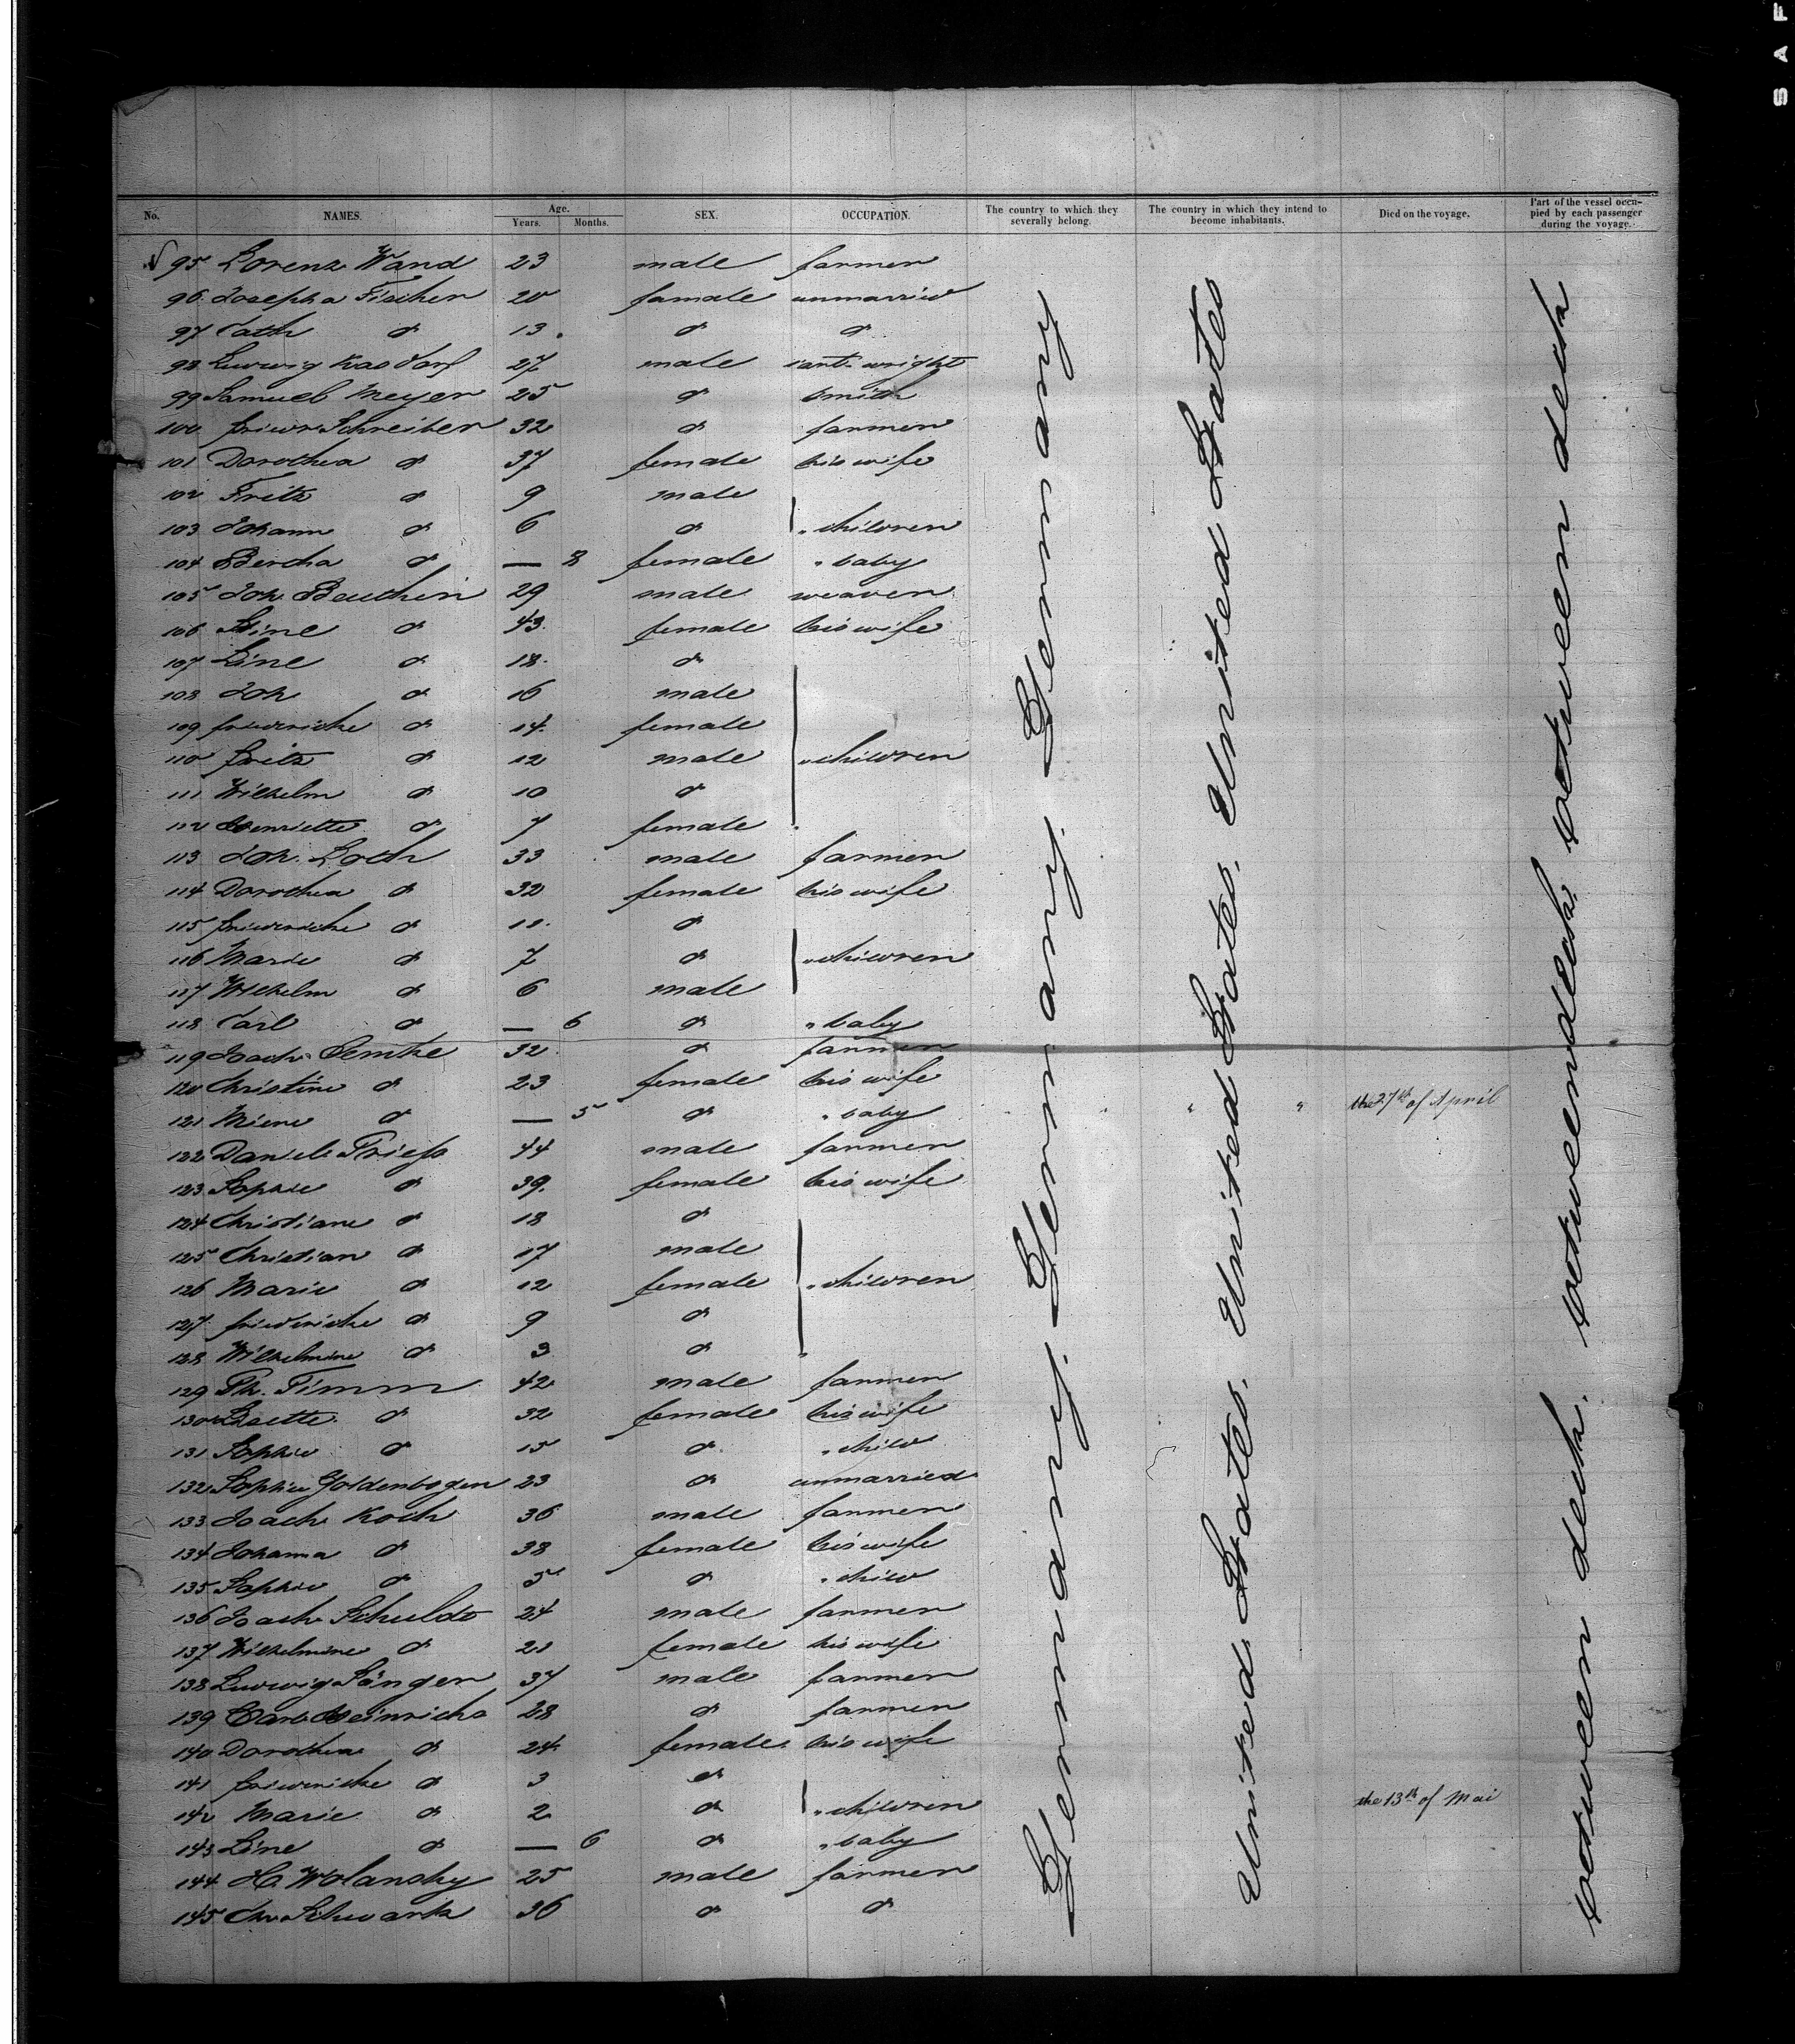 S A F
No. NAMES. Age. Years. Months. SEX. OCCUPATION. The country to which they severally belong. The country in which they intend to become inhabitants. Died on the voyage. Part of the vessel occupied by each passenger during the voyage.
95 Lorenz Wand 23 male farmer
96. Josepha Fischer 20 famale unmarried
97 Cath do 13. do do
98 Ludwig Kasdorf 27 male cart-wright
99 Samuel Meyer 25 do smith
100 friedr Schreiber 32 do farmer
101 Dorothea do 37 female his wife
102 Fritz do 9 male
103 Johann do 6 do " children
104 Bertha do — 8 female " baby
105 Joh. Beuthin 29 male weaver
106 Stine do 43. female his wife
107 Line do 18. do
108 Joh do 16 male
109 friedericke do 14. female
110 fritz do 12 male " children
111 Wilhelm do 10 do
112 Henriette do 7 female
113 Joh. Loth 33 male farmer
114 Dorothea do 32 female his wife
115 friedericke do 11. do
116 Marie do 7 do " children
117 Wilhelm do 6 male
118 Carl do — 6 do " baby
119 Joach. Lemke 32 do farmer
120 Christine do 23 female his wife
121 Miene do — 5 do " baby " " " " the 27th of April
122 Daniel 44 male farmer
123 Sophie do 39. female his wife
124 Christiane do 18 do
125 Christian do 17 male
126 Marie do 12 female " children
127 friedericke do 9 do
128 Wilhelmine do 3 do
129 Timm 42 male farmer
130 do 32 female his wife
131 Sophie do 15 do " child
132 Sophie Goldenbogen 23 do unmarried
133 Joach. Koch 36 male farmer
134 Johanna do 38 female his wife
135 Sophie do 5 do " child
136 Joach. Schuldt 24 male farmer
137 Wilhelmine do 21 female his wife
138 Ludwig Sänger 37 male farmer
139 Carl Heinrichs 28 do farmer
140 Dorothea do 24 female his wife
141 friedericke do 3 do
142 Marie do 2 do " children the 13th of Mai
143 Line do — 6 do " baby
144 H. Wolansky 25 male farmer
145 Chr. Schwark 36 do do
Germany. Germany. Germany
United States. United States. United States
between deck. between deck. between deck